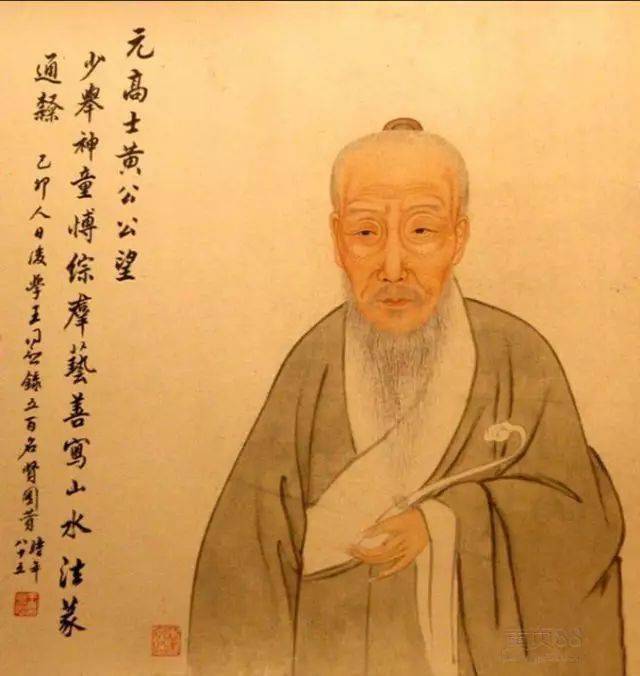 元高士黃公公望
少舉神童愽綜羣藝善寫山水法篆
通隸 己卯人日後學王同愈錄五百名賢圖贊時年
八十五